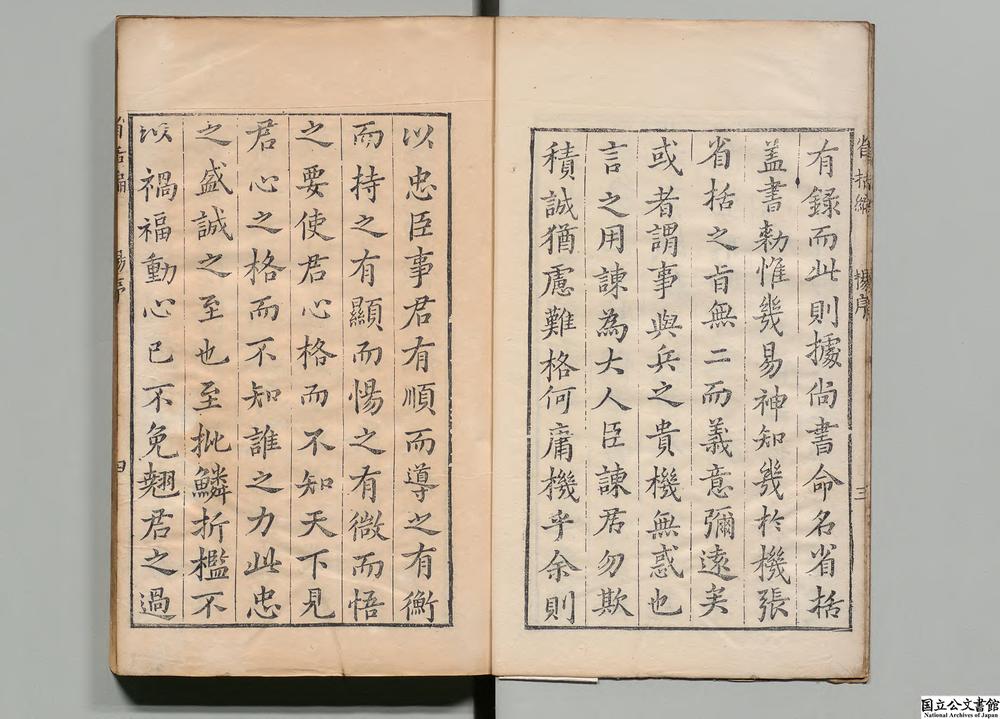 有録而此則據尚書命名省括
盖書勑惟幾易神知幾於機張
省括之旨無二而義意彌遠矣
或者謂事與兵之貴機無惑也
言之用諫為大人臣諫君勿欺
積誠猶慮難格何庸機乎余則
以忠臣事君有順而導之有衡
而持之有顯而惕之有微而悟
之要使君心格而不知天下見
君心之格而不知誰之力此忠
之盛誠之至也至批鱗折檻不
以禍福動心已不免翹君之過
省括編 楊序 三
楊序 四
国立公文書館
National Archives of Japan